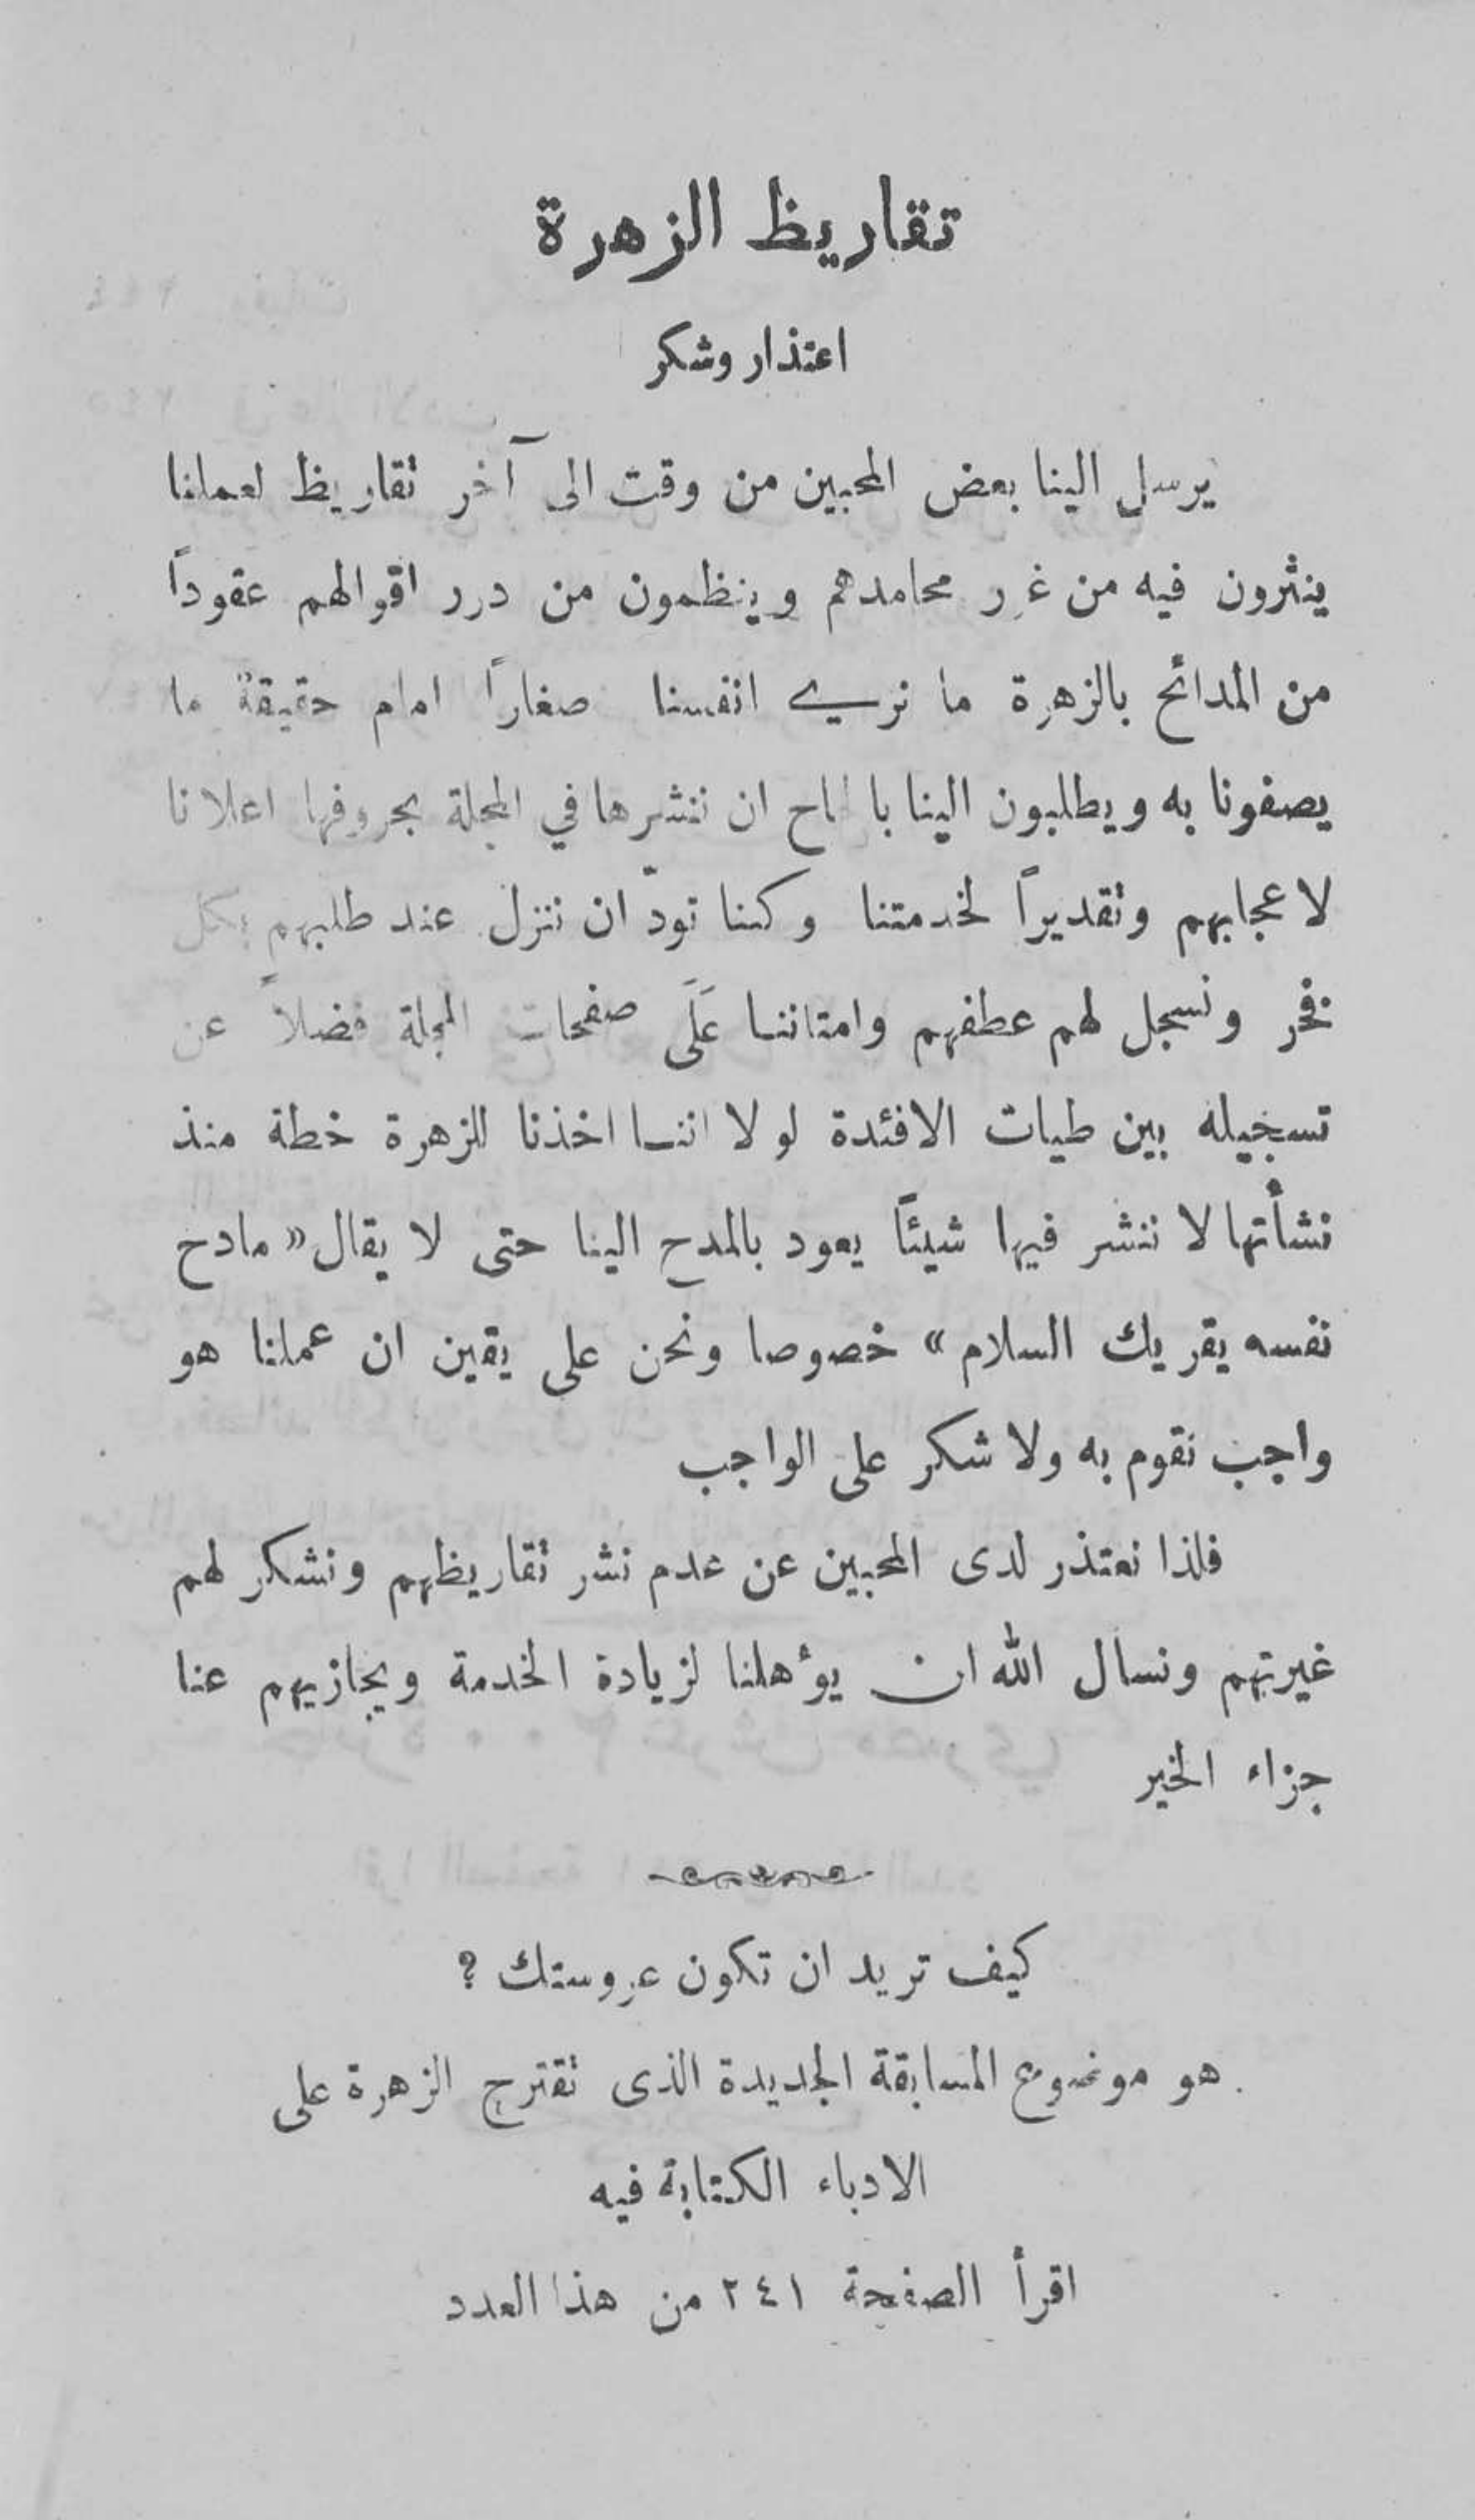 تقاريظ الزهرة
اعتذار وشكر
يرسل الينا بعض المحبين من وقت الى آخر تقاريظ لعملنا
ينثرون فيه من غرر محامدهم وينظمون من درر اقوالهم عقوداً
من المدائح بالزهرة ما نرى انفسنا صغاراً امام حقيقة ما
يصفونا به ويطلبون الينا بالحاح ان ننشرها في المجلة بحروفها اعلانا
لاعجابهم وتقديراً لخدمتنا وكنا نودّ ان ننزل عند طلبهم بكل
فخر ونسجل لهم عطفهم وامتاننا عَلَى صفحات المجلة فضلاً عن
تسجيله بين طيات الافئدة لولا اننا اخذنا للزهرة خطة منذ
نشأتها لا ننشر فيها شيئاً يعود بالمدح الينا حتى لا يقال «مادح
نفسه يقريك السلام» خصوصا ونحن على يقين ان عملنا هو
واجب نقوم به ولا شكر على الواجب
فلذا نعتذر لدى المحبين عن عدم نشر تقاريظهم ونشكر لهم
غيرتهم ونسال الله ان يؤهلنا لزيادة الخدمة ويجازيهم عنا
جزاء الخير
كيف تريد ان تكون عروستك ؟
هو موضوع المسابقة الجديدة الذى تقترح الزهرة على
الادباء الكتابة فيه
اقرأ الصفحة ٢٤١ من هذا العدد